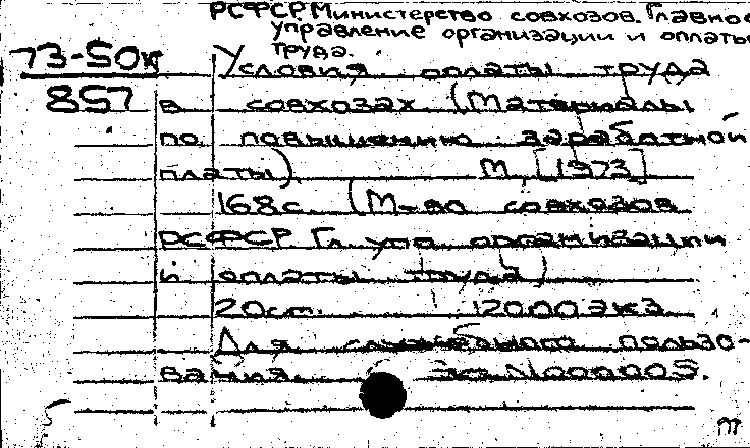 РСФСР. Министерство совхозов. Главное
управление организации и оплаты
труда.
73-50к
857
Условия оплаты труда
в совхозах (Материалы
по повышению заработной
платы). М, [1973]
168с. (М-во совхозов
РСФСР. Гл. упр. организации
и оплаты труда)
20см. 12000 экз.
Для служебного пользо-
вания. Экз. N000005.